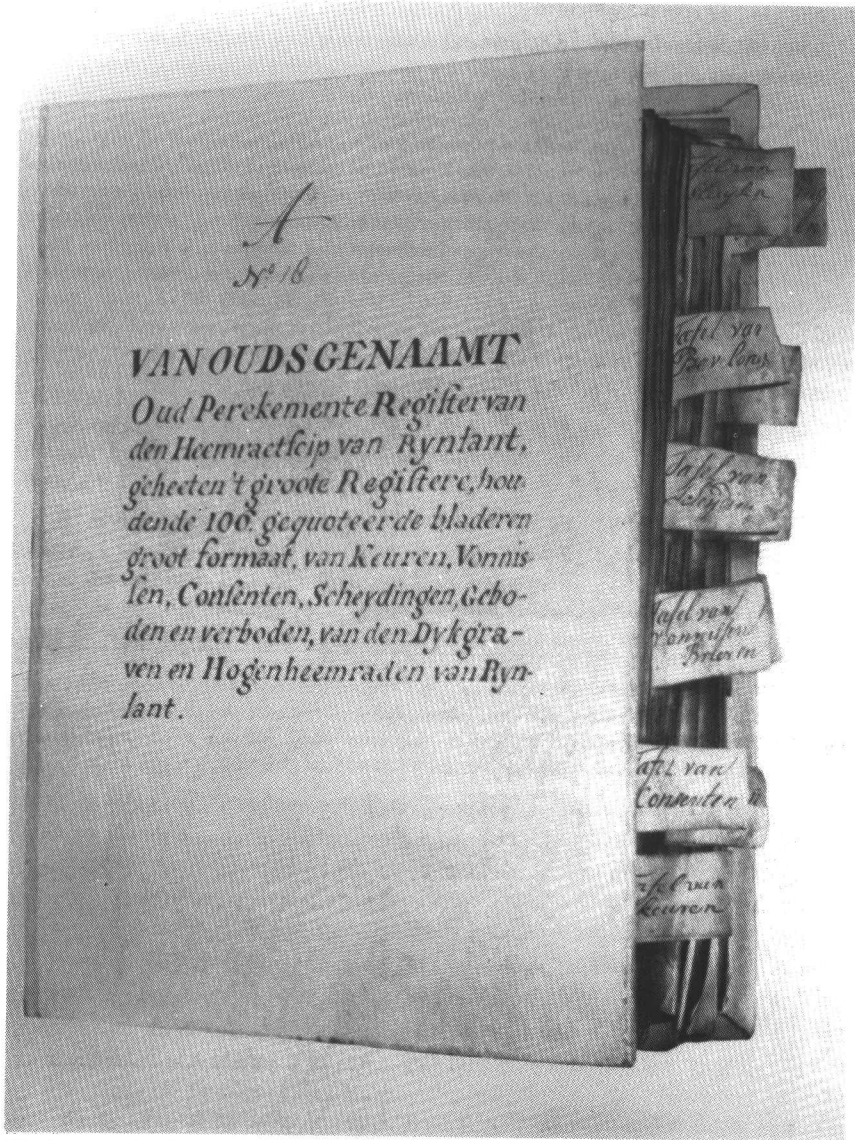 A
No 18
VAN OUDS GENAAMT
Oud Perekemente Regiſter van
den Heemraetſcip van Rynlant,
geheeten 't groote Regiſtere, hou-
dende 106. gequoteerde bladeren
groot formaat, van Keuren, Vonnis-
ſen, Conſenten, Scheydingen, Gebo-
den en verboden, van den Dykgra-
ven en Hogenheemraden van Ryn-
lant.
Tafel van
Tafel van
Tafel van
Tafel van
Brieven
Tafel van
Consenten
Tafel van
keuren